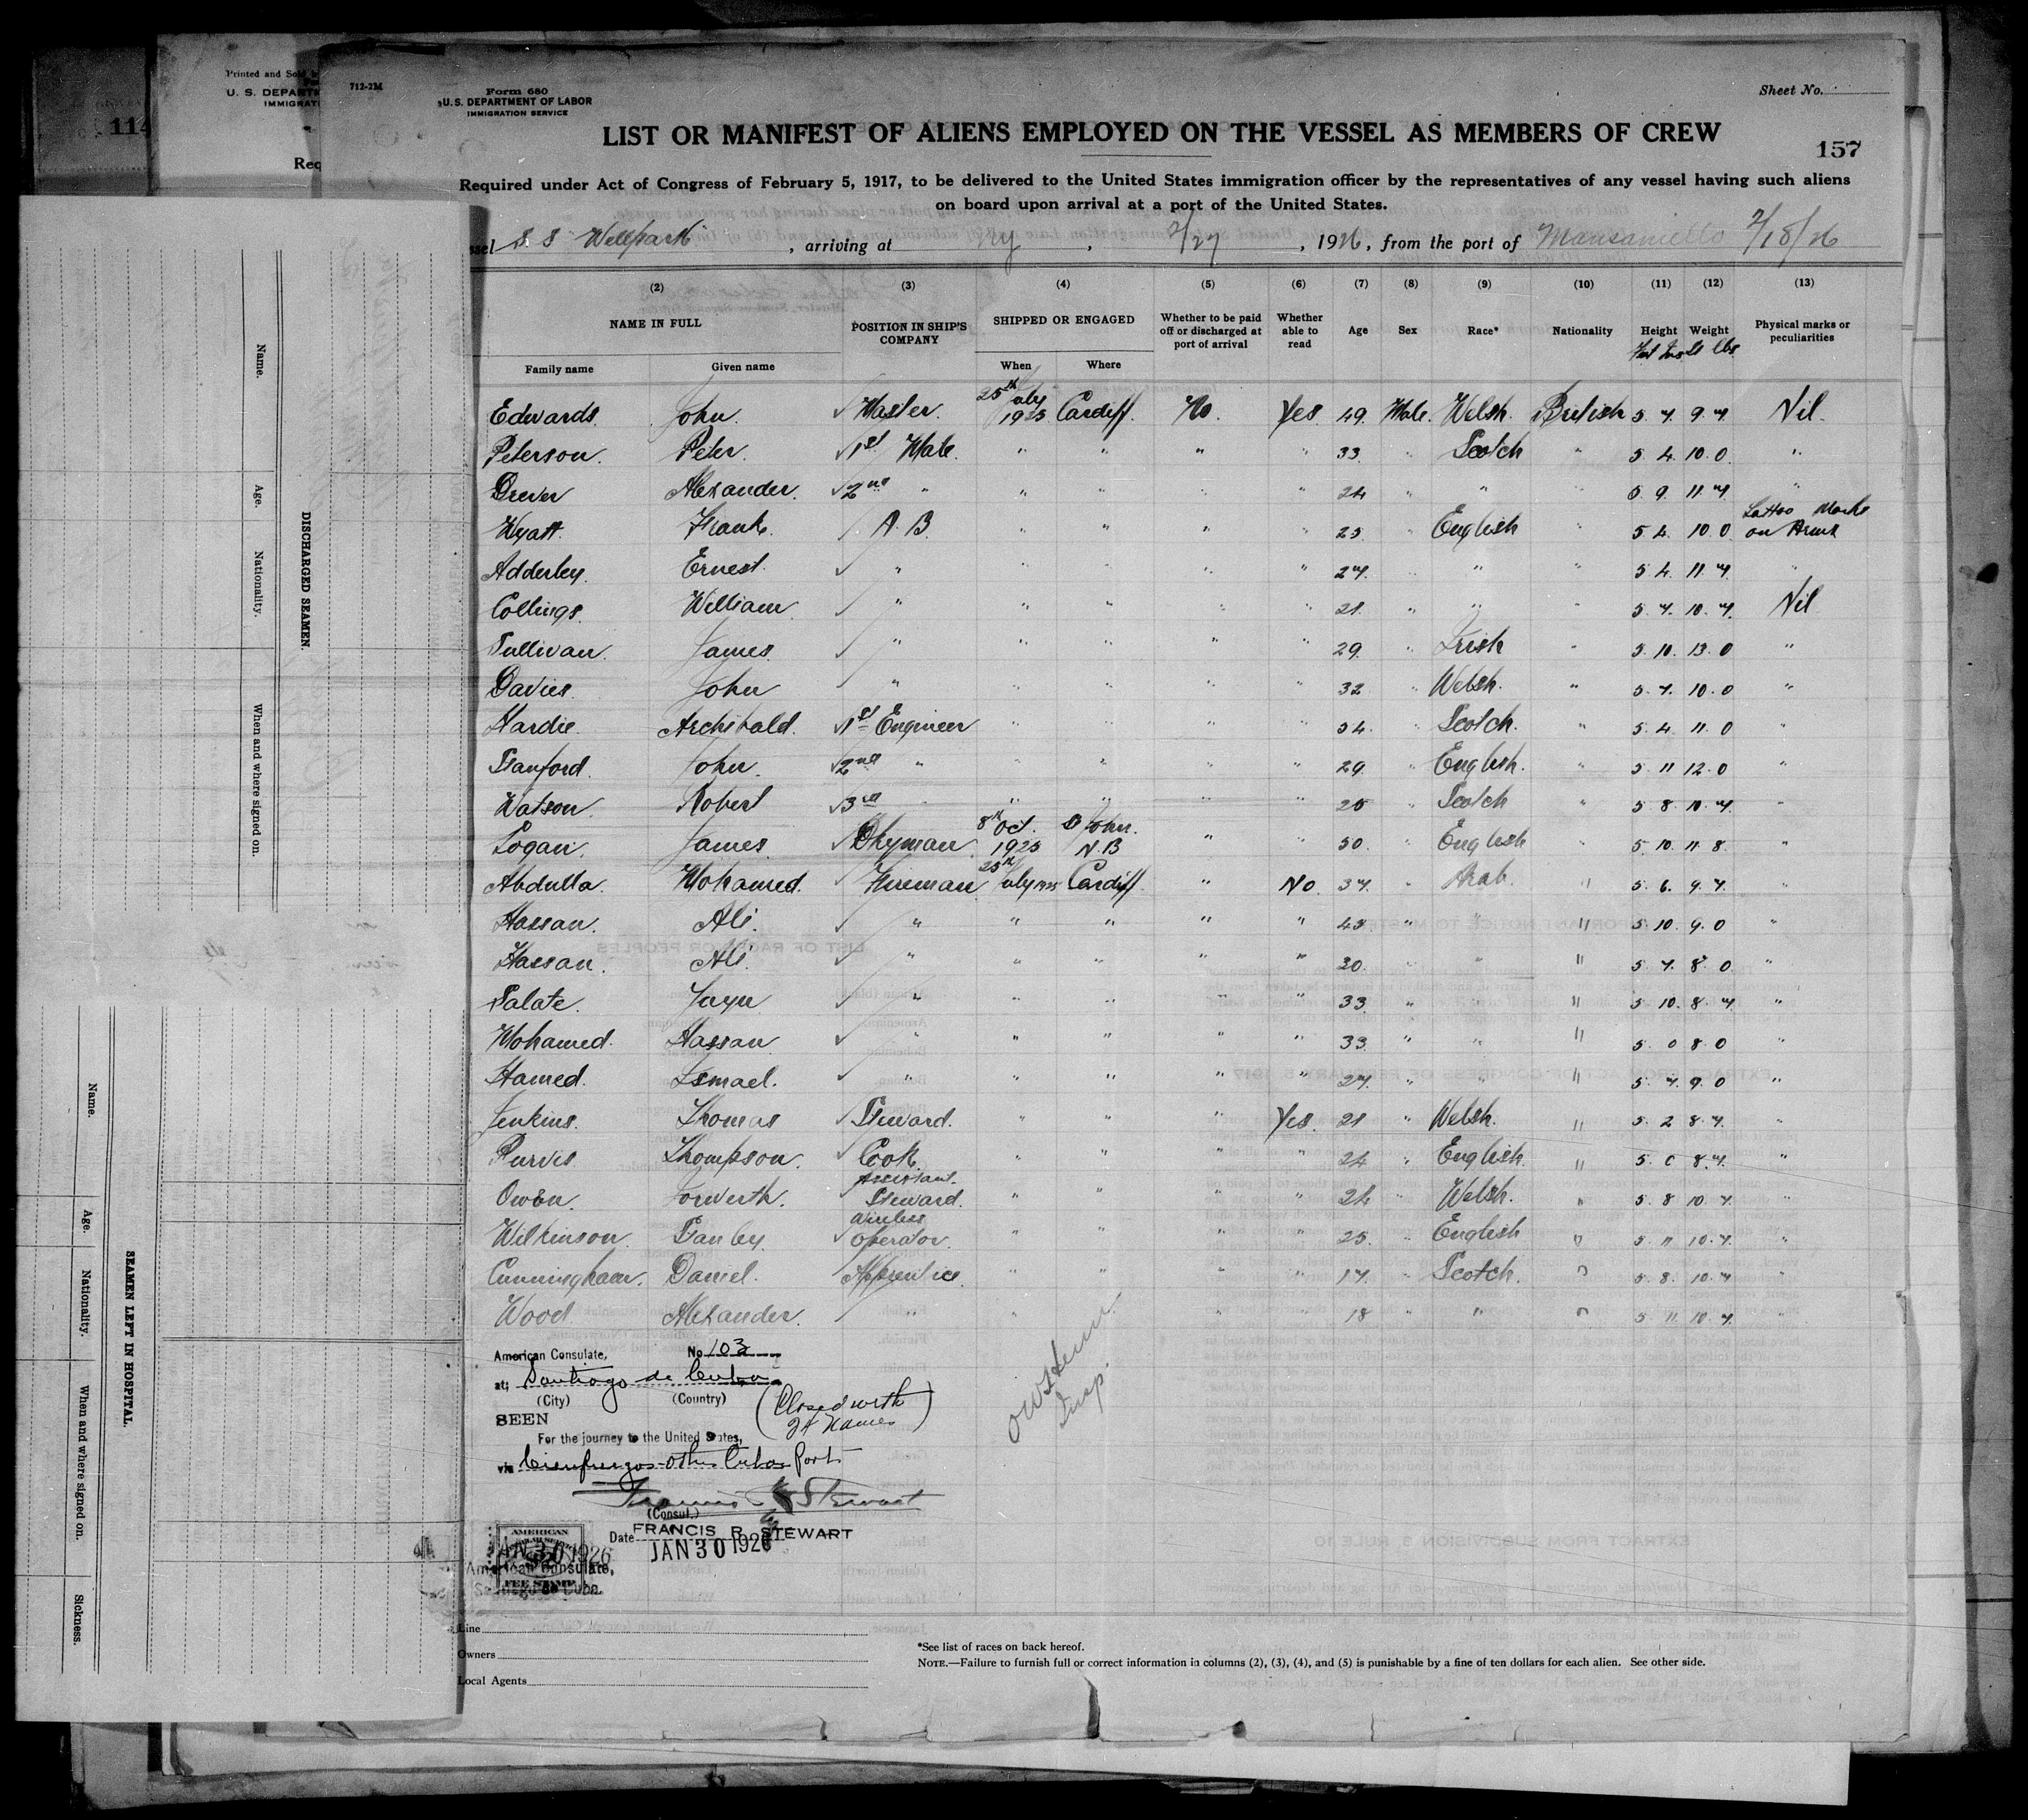 Printed and Sold
U. S. DEPART
IMMIGRAT
114
Req
712-2M
Form 680
U. S. DEPARTMENT OF LABOR
IMMIGRATION SERVICE
Sheet No.
LIST OR MANIFEST OF ALIENS EMPLOYED ON THE VESSEL AS MEMBERS OF CREW
157
Required under Act of Congress of February 5, 1917, to be delivered to the United States immigration officer by the representatives of any vessel having such aliens
on board upon arrival at a port of the United States.
ssel S. S Wellpark, arriving at Ny, 2/27, 1926, from the port of Mansaniello 2/18/26
(2) (3) (4) (5) (6) (7) (8) (9) (10) (11) (12) (13)
NAME IN FULL POSITION IN SHIP'S COMPANY SHIPPED OR ENGAGED Whether to be paid off or discharged at port of arrival Whether able to read Age Sex Race* Nationality Height Weight Physical marks or peculiarities
Family name Given name When Where
Edwards. John. ✓ Master. 25th July 1925 Cardiff. No. Yes. 49. Male. Welsh. British 5. 7. 9. 7. Nil.
Peterson. Peter. ✓ 1st Mate. " " " " 33. " Scotch " 5. 4. 10. 0. "
Drever Alexander. ✓ 2nd " " " " " 24 " " " 5. 9. 11. 7. "
Wyatt. Frank. ✓ A. B. " " " " 25. " English " 5. 4. 10. 0. Tattoo Marks on Arms
Adderley. Ernest. ✓ " " " " " 27. " " " 5. 4. 11. 7. "
Collings. William. ✓ " " " " " 21. " " " 5. 7. 10. 7. Nil
Sullivan. James. ✓ " " " " " 29. " Irish " 5. 10. 13. 0 "
Davies. John ✓ " " " " " 32 " Welsh. " 5. 7. 10. 0 "
Hardie. Archibald. ✓ 1st Engineer " " " " 54. " Scotch. " 5. 4. 11. 0 "
Stanford. John. ✓ 2nd " " " " " 29. " English. " 5. 11 12. 0 "
Watson. Robert ✓ 3rd " " " " " 25 " Scotch " 5. 8. 10. 7. "
Logan. James. ✓ Dkyman 8th Oct. 1925 St John. N.B " " 50. " English " 5. 10. 11. 8. "
Abdulla. Mohamed. ✓ Fireman. 25th July 1925 Cardiff. " No. 37. " Arab. " 5. 6. 9. 7. "
Hassan. Ali. ✓ " " " " " 43. " " " 5. 10. 9. 0 "
Hassan. Ali. ✓ " " " " " 30. " " " 5. 7. 8. 0. "
Salate. ✓ " " " " " 33. " " " 5. 10. 8. 7. "
Mohamed. Hassan ✓ " " " " 33. " " " 5. 0 8. 0 "
Hamed. Ismael. ✓ " " " " " 27. " " " 5. 7. 9. 0 "
Jenkins. Thomas ✓ Steward. " " " Yes. 21 " Welsh. " 5. 2 8. 7. "
Purves Thompson. ✓ Cook. " " " " 24 " English. " 5. 0 8. 7. "
Owen. Iorwerth. Assistant Steward. " " " " 24 " Welsh. " 5. 8 10. 7. "
Wilkinson. Stanley. ✓ Wireless Operator. " " " " 25. " English " 5. 11 10. 7. "
Cunningham. Daniel. Apprentice. " " " " 17. " Scotch. " 5. 8. 10. 7 "
Wood Alexander. ✓ " " " " 18 " " " 5. 11. 10. 7. "
American Consulate, No 103
at; Santiago de Cuba
(City) (Country)
(Closed with 24 names)
SEEN
For the journey to the United States,
via Cienfuegos other Cuban Ports
Francis R Stewart
(Consul.)
FRANCIS R. STEWART
Date JAN 30 1926
AMERICAN
FEE STAMP
JAN 30 1926
American Consulate,
Santiago de Cuba.
Insp.
Line
Owners
Local Agents
*See list of races on back hereof.
NOTE.—Failure to furnish full or correct information in columns (2), (3), (4), and (5) is punishable by a fine of ten dollars for each alien. See other side.
DISCHARGED SEAMEN.
Name.
Age.
Nationality.
When and where signed on.
SEAMEN LEFT IN HOSPITAL.
Name.
Age.
Nationality.
When and where signed on.
Sickness.